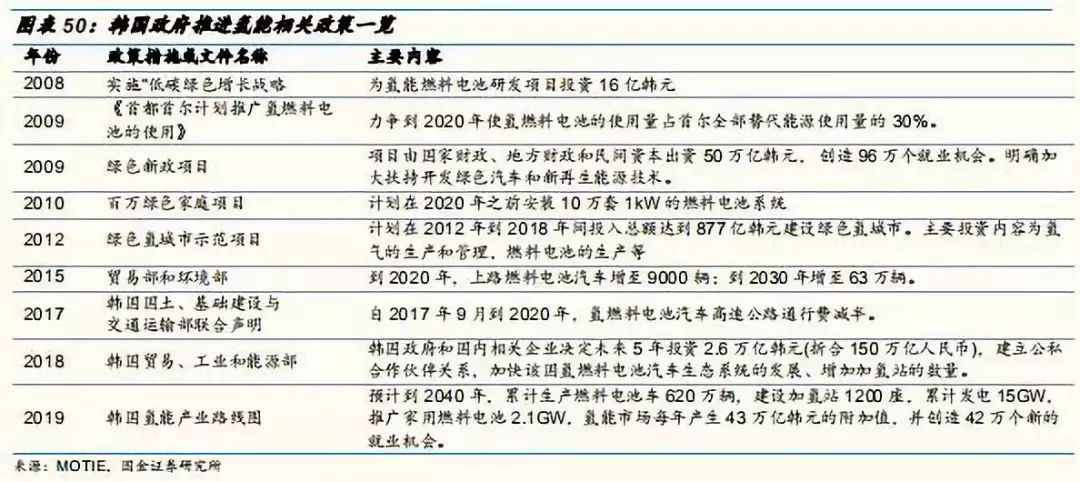 图表 50：韩国政府推进氢能相关政策一览
年份 政策措施或文件名称 主要内容
2008 实施“低碳绿色增长战略 为氢能燃料电池研发项目投资 16 亿韩元
2009 《首都首尔计划推广氢燃料电池的使用》 力争到 2020 年使氢燃料电池的使用量占首尔全部替代能源使用量的 30%。
2009 绿色新政项目 项目由国家财政、地方财政和民间资本出资 50 万亿韩元，创造 96 万个就业机会。明确加
大扶持开发绿色汽车和新再生能源技术。
2010 百万绿色家庭项目 计划在 2020 年之前安装 10 万套 1kW 的燃料电池系统
2012 绿色氢城市示范项目 计划在 2012 年到 2018 年间投入总额达到 877 亿韩元建设绿色氢城市。主要投资内容为氢
气的生产和管理，燃料电池的生产等
2015 贸易部和环境部 到 2020 年，上路燃料电池汽车增至 9000 辆；到 2030 年增至 63 万辆。
2017 韩国国土、基础建设与
交通运输部联合声明 自 2017 年 9 月到 2020 年，氢燃料电池汽车高速公路通行费减半。
2018 韩国贸易、工业和能源部 韩国政府和国内相关企业决定未来 5 年投资 2.6 万亿韩元(折合 150 万亿人民币)，建立公私
合作伙伴关系，加快该国氢燃料电池汽车生态系统的发展、增加加氢站的数量。
2019 韩国氢能产业路线图 预计到 2040 年，累计生产燃料电池车 620 万辆，建设加氢站 1200 座，累计发电 15GW，
推广家用燃料电池 2.1GW，氢能市场每年产生 43 万亿韩元的附加值，并创造 42 万个新的
就业机会。
来源：MOTIE，国金证券研究所